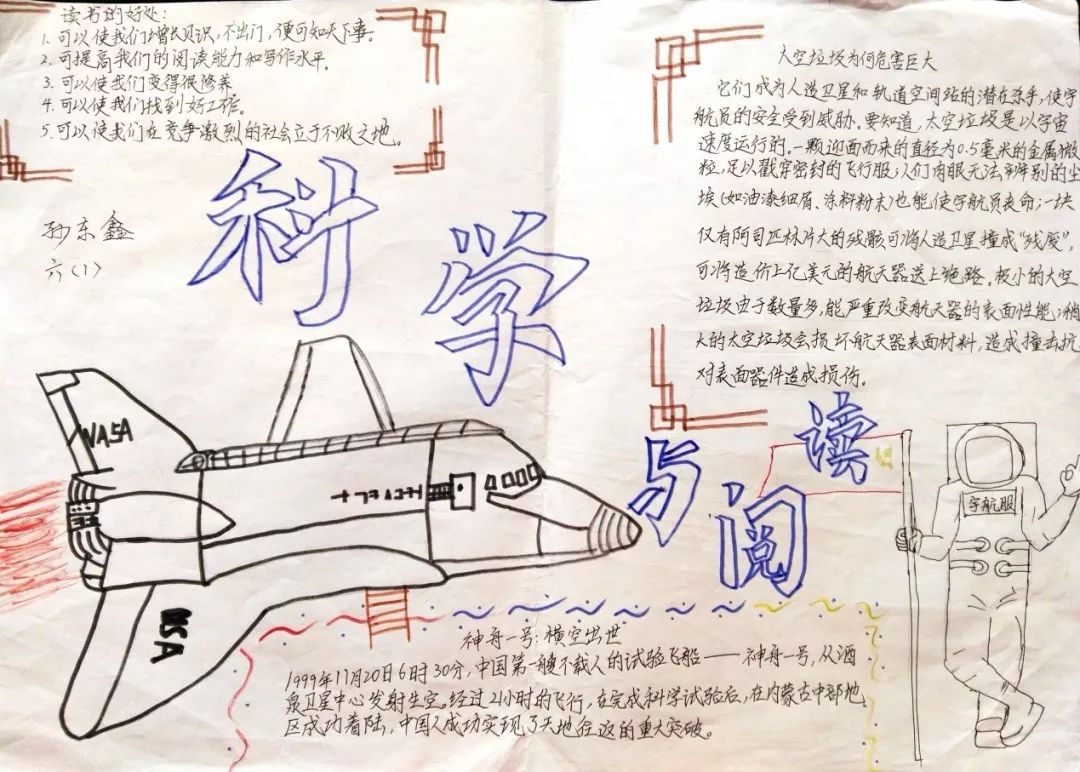 读书的好处:
1. 可以使我们增长见识,不出门,便可知天下事。
2. 可提高我们的阅读能力和写作水平。
3. 可以使我们变得很修养
4. 可以使我们找到好工作。
5. 可以使我们在竞争激烈的社会立于不败之地。
孙东鑫
六(1)
科学
与阅读
太空垃圾为何危害巨大
它们成为人造卫星和轨道空间站的潜在杀手,使宇
航员的安全受到威胁。要知道,太空垃圾是以宇宙
速度运行的。一颗迎面而来的直径为0.5毫米的金属微
粒,足以戳穿密封的飞行服;人们肉眼无法辨别的尘
埃(如油漆细屑、涂料粉末)也能使宇航员丧命;一块
仅有阿司匹林片大的残骸可将人造卫星撞成“残废”,
可将造价上亿美元的航天器送上绝路。极小的太空
垃圾由于数量多,能严重改变航天器的表面性能;稍
大的太空垃圾会损坏航天器表面材料,造成撞击坑
对表面器件造成损伤。
NASA
USA
宇航服
神舟一号:横空出世
1999年11月20日6时30分,中国第一艘不载人的试验飞船——神舟一号,从酒
泉卫星中心发射生空。经过21小时的飞行,在完成科学试验后,在内蒙古中部地
区成功着陆,中国人成功实现了天地往返的重大突破。